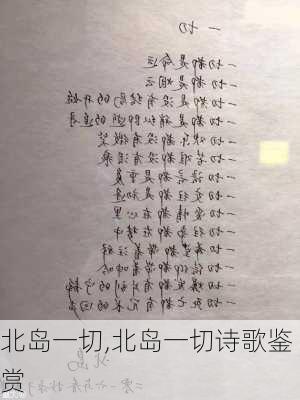 一切
一切都是命运
一切都是烟云
一切都是没有结局的开始
一切都是稍纵即逝的追寻
一切欢乐都没有微笑
一切苦难都没有泪痕
一切语言都是重复
一切交往都是初逢
一切爱情都在心里
一切往事都在梦中
一切希望都带着注释
一切信仰都带着呻吟
一切爆发都有片刻的宁静
一切死亡都有冗长的回声
北岛
北岛一切,北岛一切诗歌鉴
赏